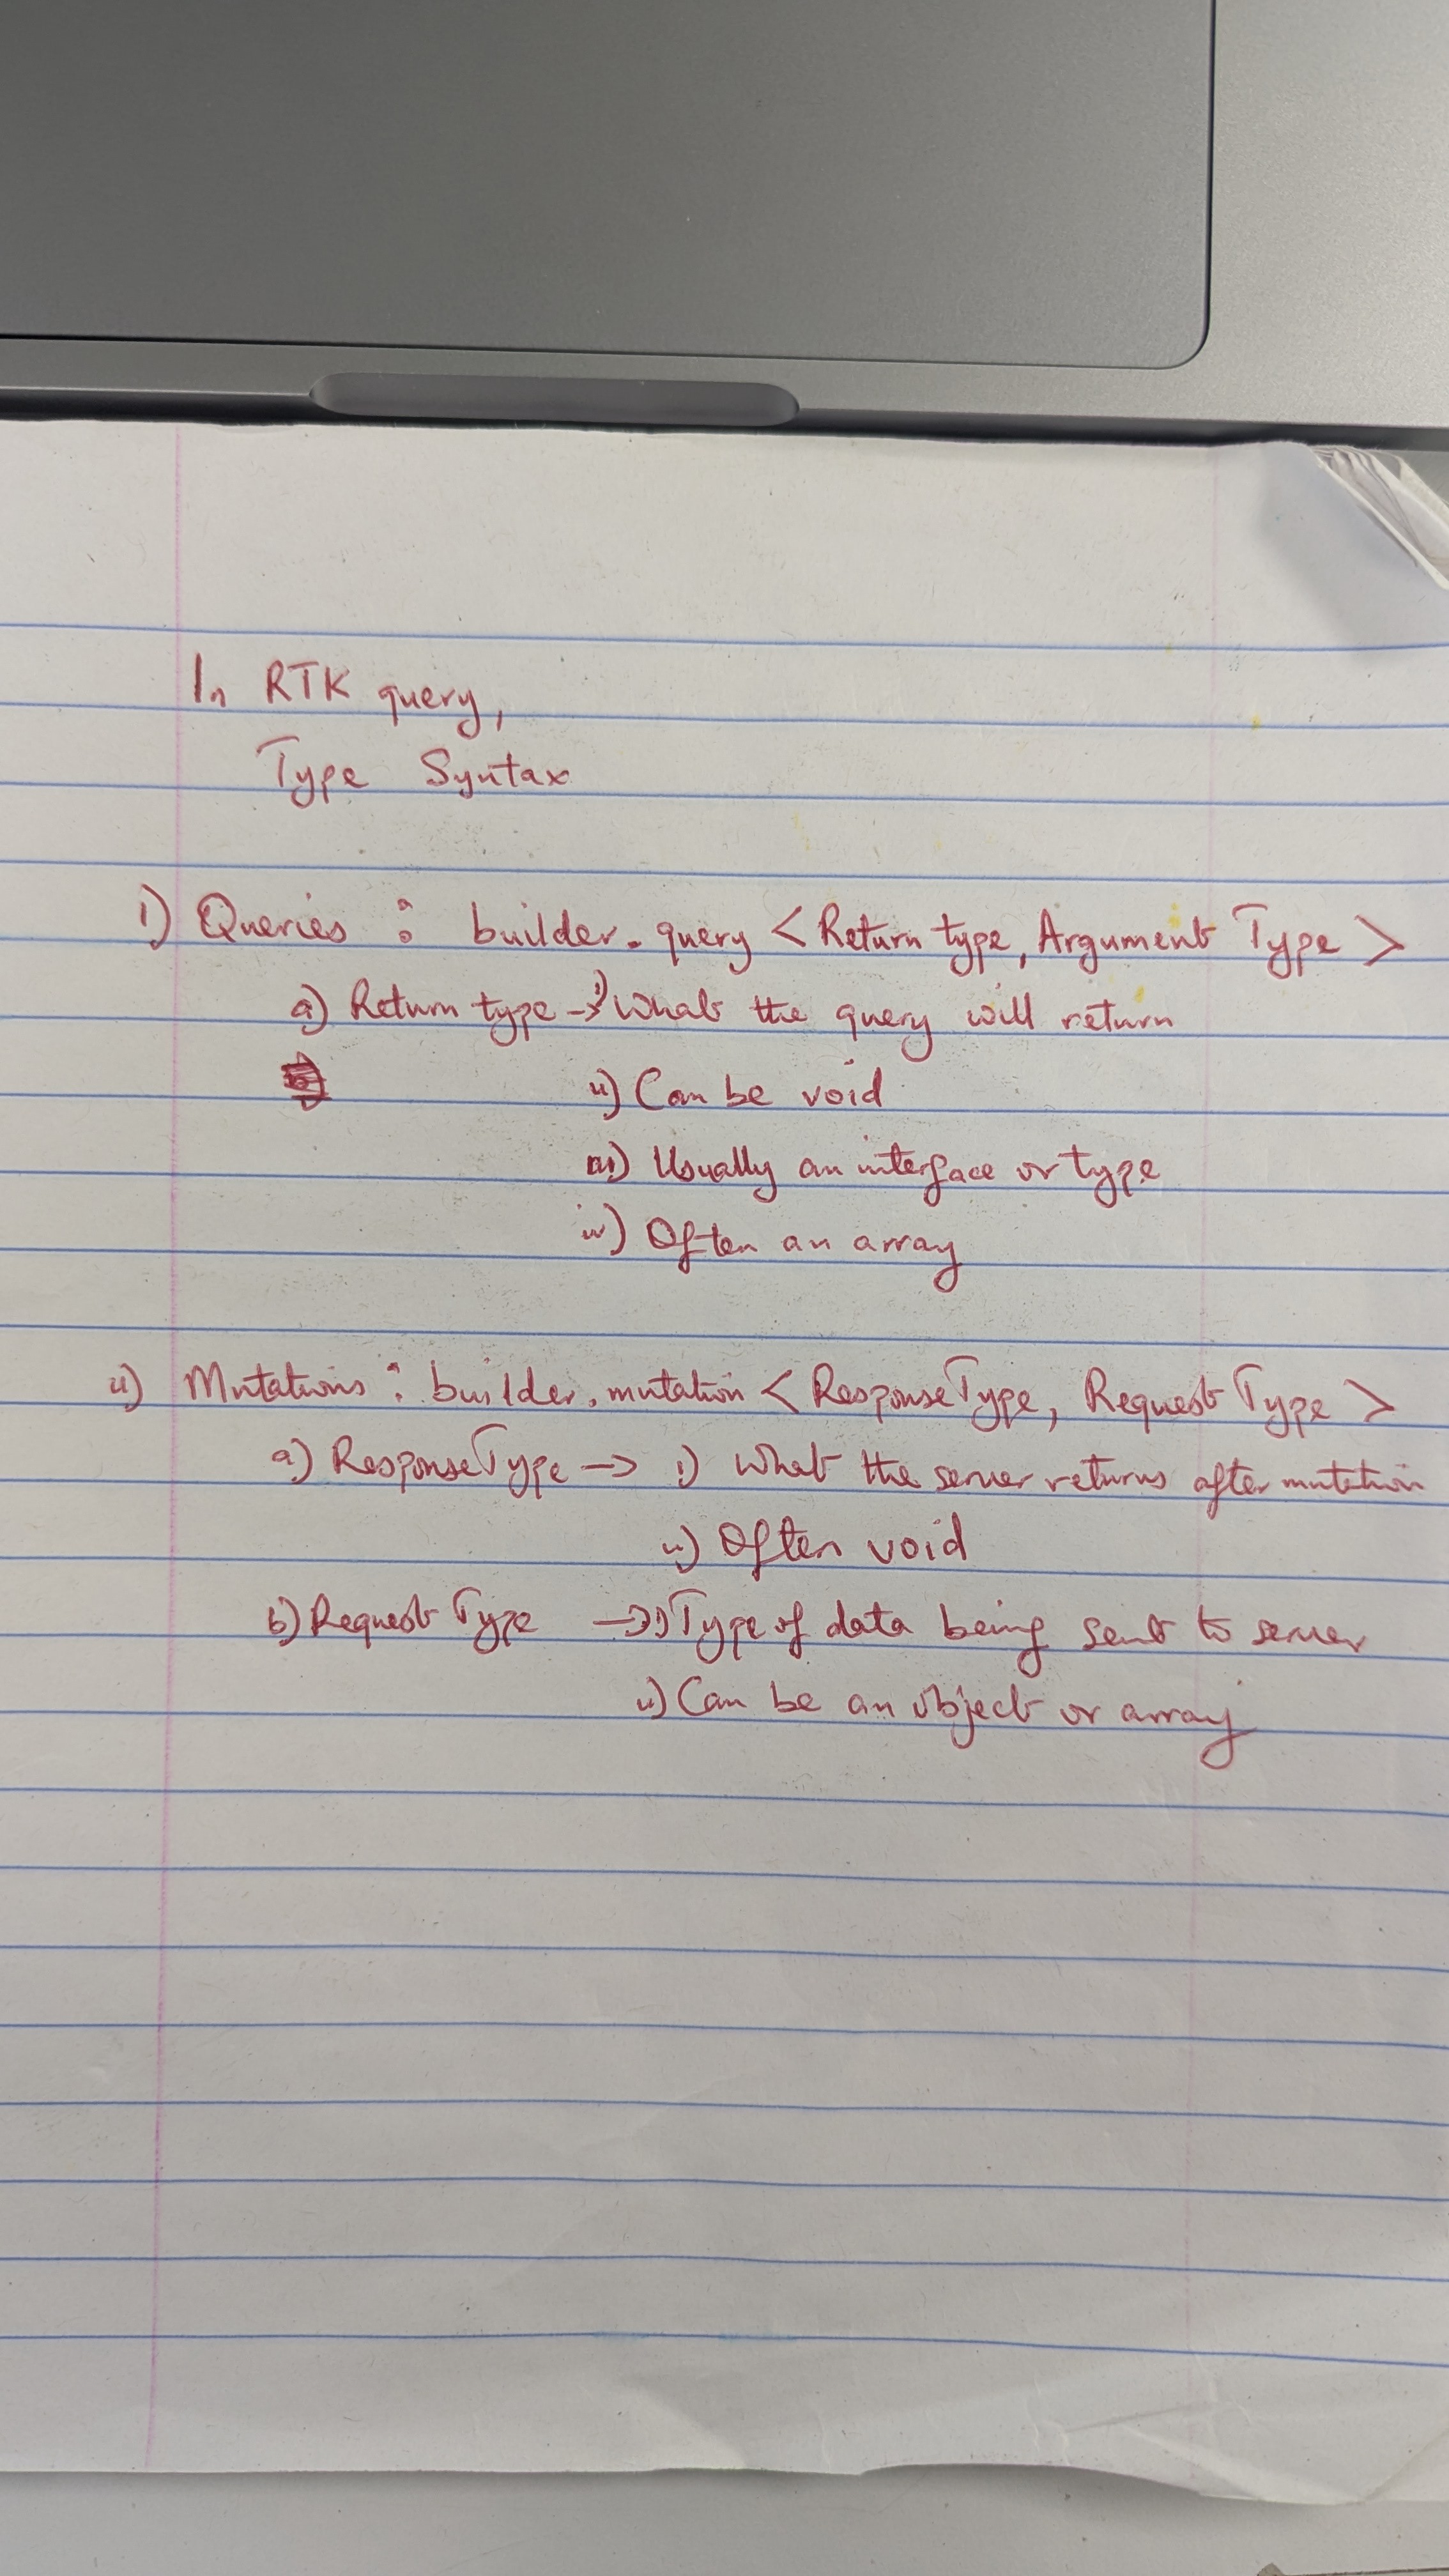 In RTK query,
Type Syntax
i) Queries : builder.query <Return type, Argument Type>
a) Return type → i) What the query will return
ii) Can be void
iii) Usually an interface or type
iv) Often an array
ii) Mutations : builder.mutation <ResponseType, Request Type>
a) ResponseType → i) What the server returns after mutation
ii) Often void
b) Request Type → i) Type of data being sent to server
ii) Can be an object or array